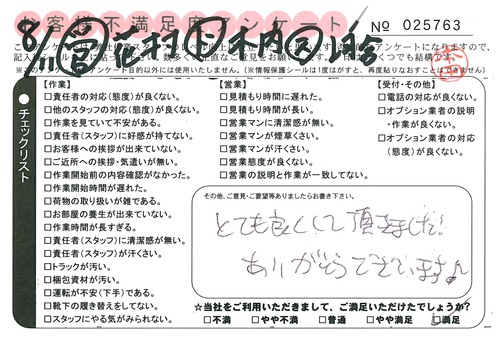 お客様不満足度アンケート
No 025763
チェックリスト
【作業】
□責任者の対応(態度)が良くない。
□他のスタッフの対応(態度)が良くない。
□作業を見ていて不安がある。
□責任者(スタッフ)に好感が持てない。
□お客様への挨拶が出来ていない。
□ご近所への挨拶・気遣いが無い。
□作業開始前の内容確認がなかった。
□作業開始時間が遅れた。
□荷物の取り扱いが雑である。
□お部屋の養生が出来ていない。
□作業時間が長すぎる。
□責任者(スタッフ)に清潔感が無い。
□責任者(スタッフ)が汗くさい。
□トラックが汚い。
□梱包資材が汚い。
□運転が不安(下手)である。
□靴下の履き替えをしてない。
□スタッフにやる気がみられない。
【営業】
□見積もり時間に遅れた。
□見積もり時間が長い。
□営業マンに清潔感が無い。
□営業マンが煙草くさい。
□営業マンが汗くさい。
□営業態度が良くない。
□営業の説明と作業が一致してない。
【受付・その他】
□電話の対応が良くない。
□オプション業者の説明
・作業が良くない。
□オプション業者の対応
(態度)が良くない。
その他、ご意見・ご要望等ありましたらお書き下さい。
とても良くして頂きました!
ありがとうございます♪
☆当社をご利用いただきまして、ご満足いただけたでしょうか?
□不満 □やや不満 □普通 □やや満足 □満足